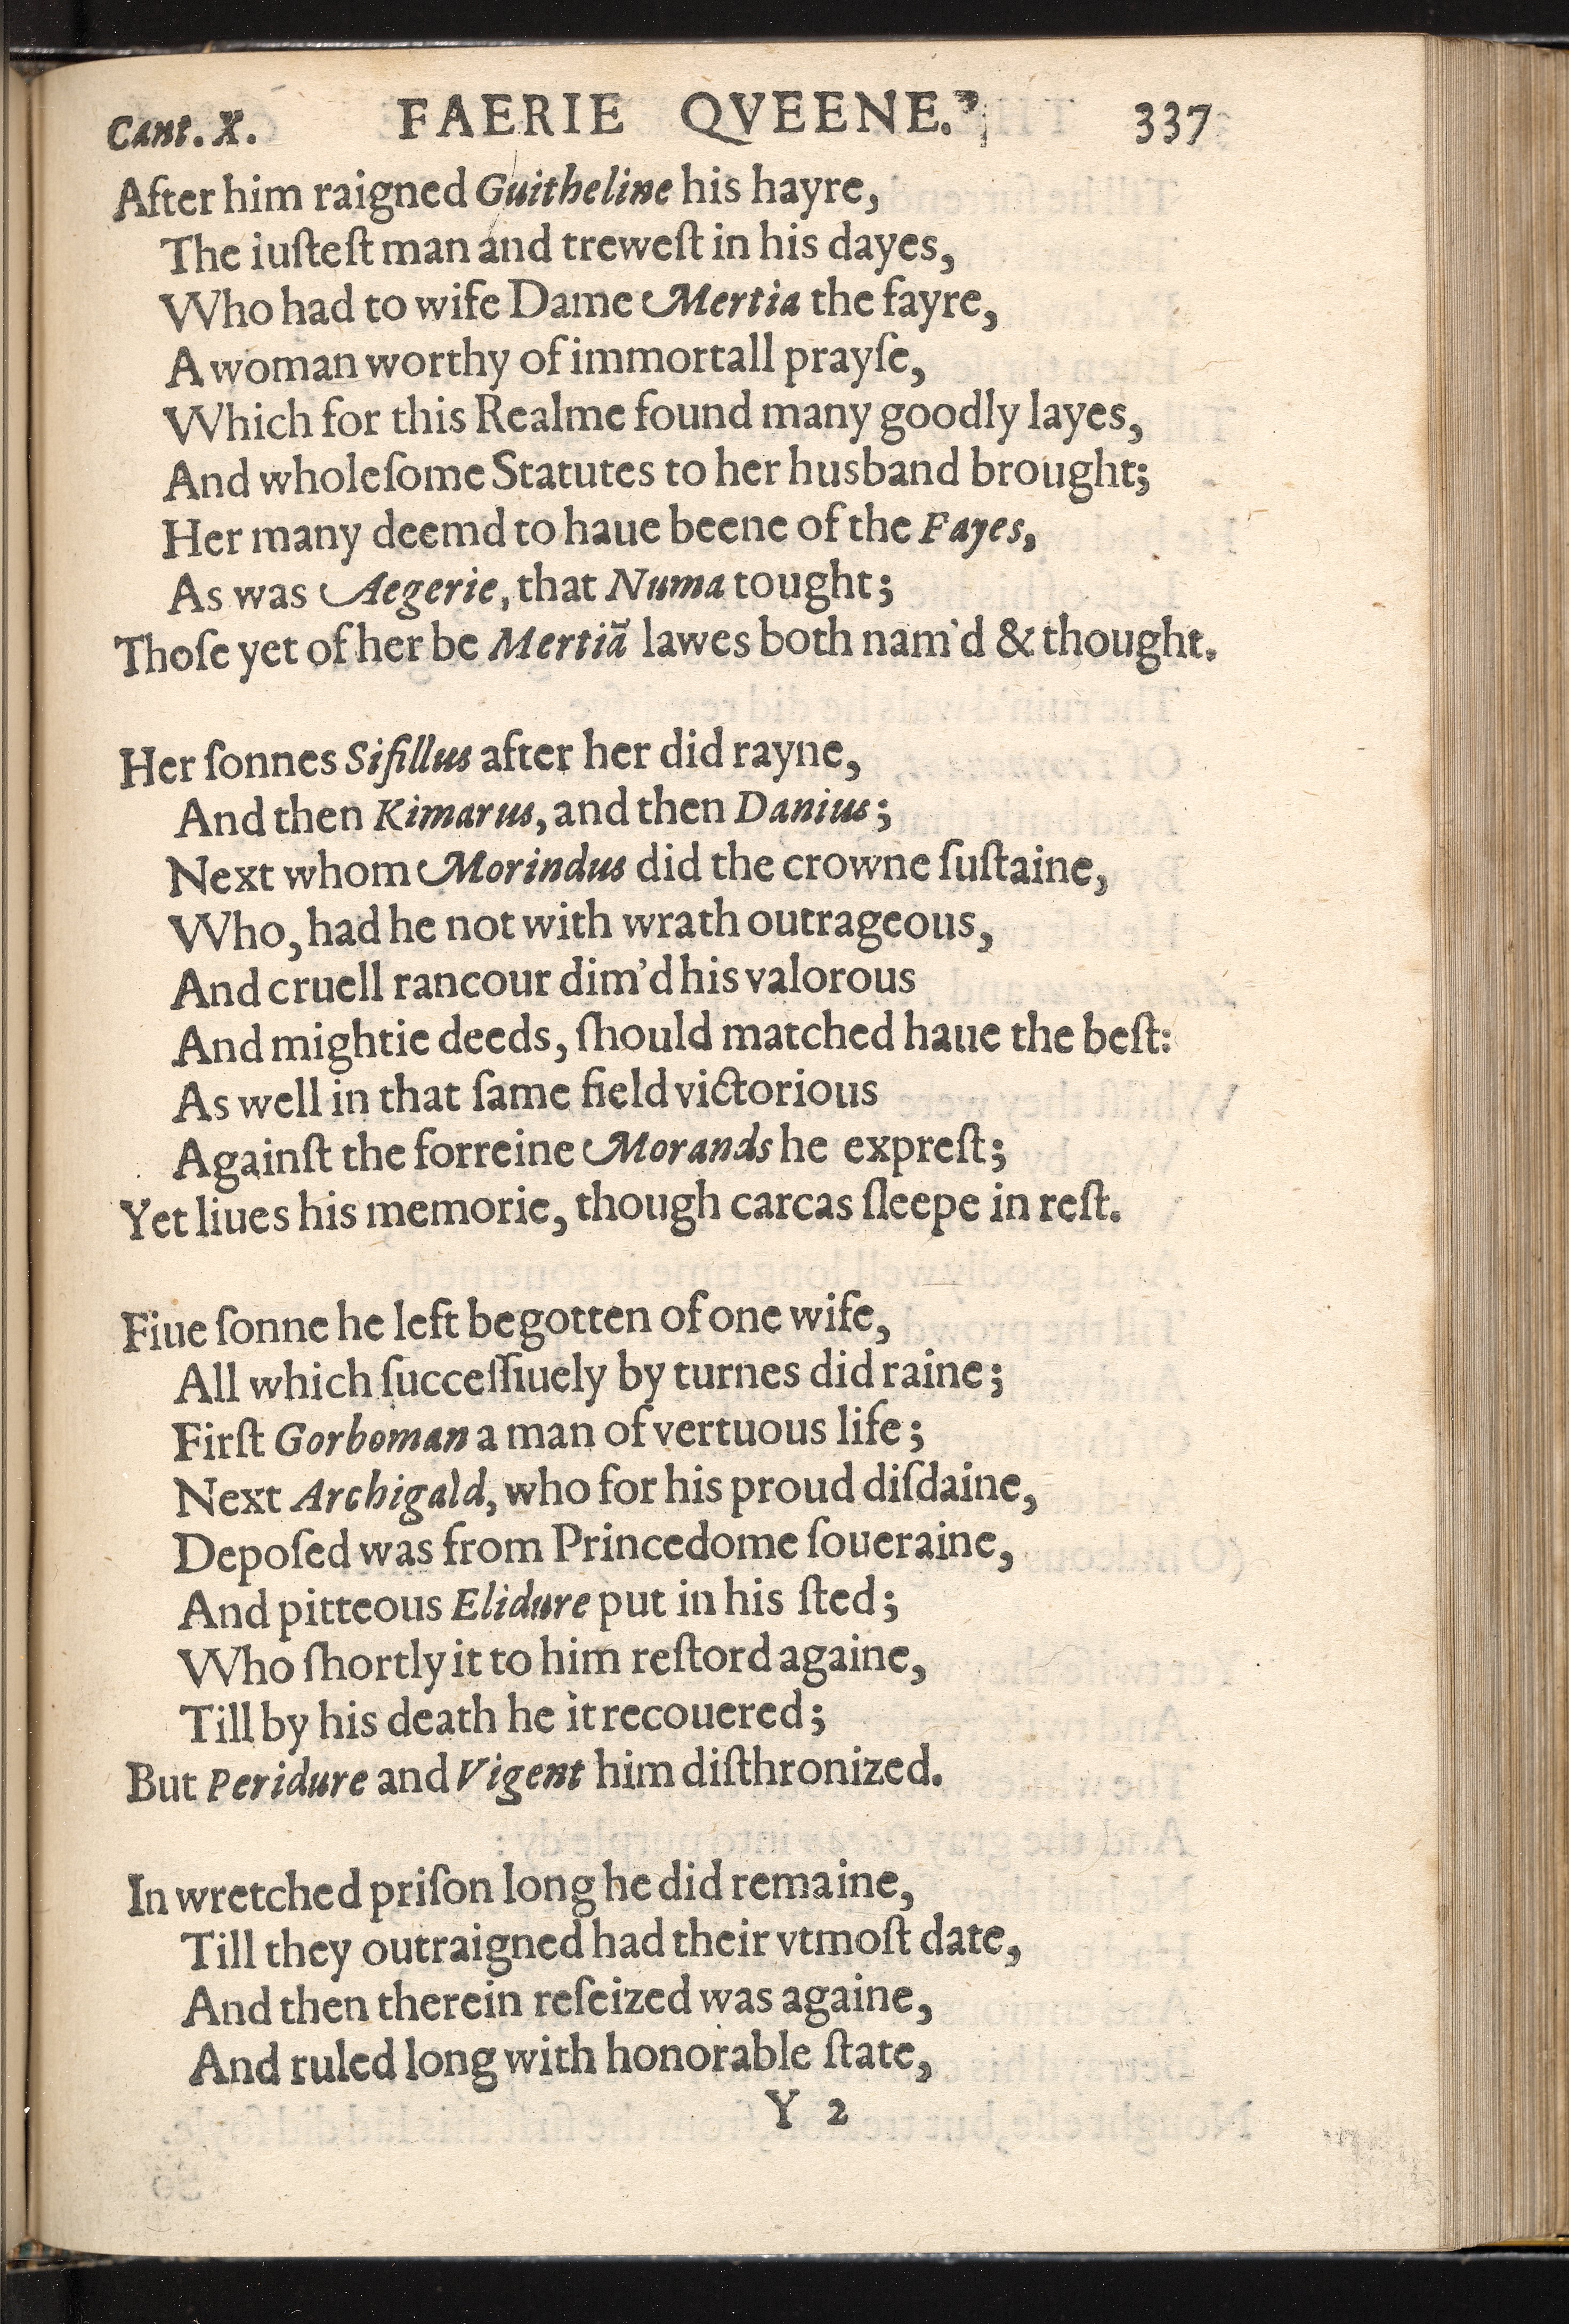 Cant. X. FAERIE QVEENE. 337
After him raigned Guitheline his hayre,
The iuſteſt man and treweſt in his dayes,
Who had to wife Dame Mertia the fayre,
A woman worthy of immortall prayſe,
Which for this Realme found many goodly layes,
And wholeſome Statutes to her husband brought;
Her many deemd to haue beene of the Fayes,
As was Aegerie, that Numa tought;
Thoſe yet of her be Mertiã lawes both nam'd & thought.
Her ſonnes Siſillus after her did rayne,
And then Kimarus, and then Danius;
Next whom Morindus did the crowne ſuſtaine,
Who, had he not with wrath outrageous,
And cruell rancour dim'd his valorous
And mightie deeds, ſhould matched haue the beſt:
As well in that ſame field victorious
Againſt the forreine Morands he expreſt;
Yet liues his memorie, though carcas ſleepe in reſt.
Fiue ſonne he left begotten of one wife,
All which ſucceſſiuely by turnes did raine;
Firſt Gorboman a man of vertuous life;
Next Archigald, who for his proud diſdaine,
Depoſed was from Princedome ſoueraine,
And pitteous Elidure put in his ſted;
Who ſhortly it to him reſtord againe,
Till by his death he it recouered;
But Peridure and Vigent him diſthronized.
In wretched priſon long he did remaine,
Till they outraigned had their vtmoſt date,
And then therein reſeized was againe,
And ruled long with honorable ſtate,
Y 2